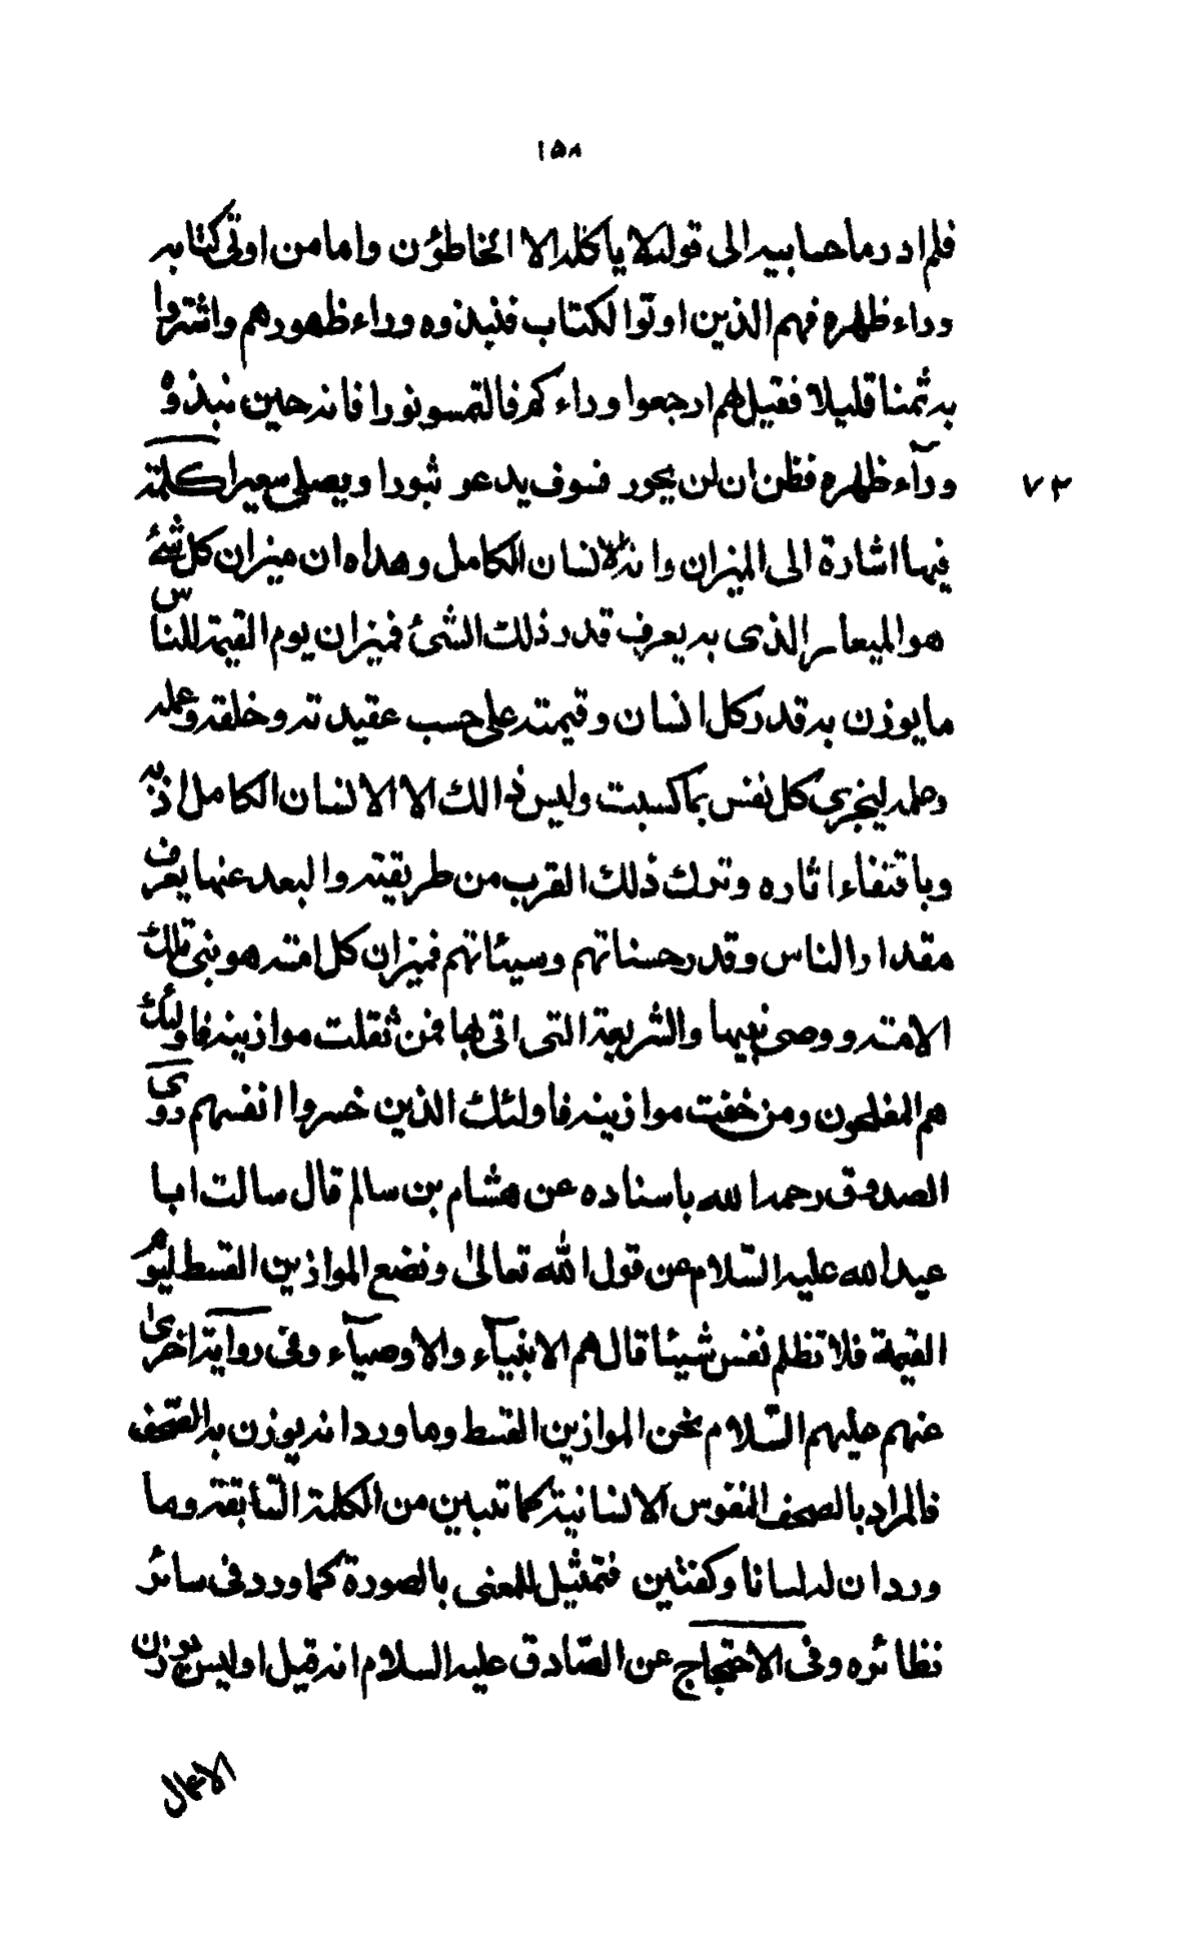 ١٥٨
فلم ادر ما حسابيه الى قوله لا ياكله الا الخاطؤن واما من اوتى كتابه
وراء ظهره فهم الذين اوتوا الكتاب فنبذوه وراء ظهورهم واشتروا
به ثمنا قليلا فقيل لهم ارجعوا وراءكم فالتمسو نورا فانه حين نبذه
ورآء ظهره فظن ان لن يحور فسوف يدعو ثبورا ويصلى سعيرا كلمة
٧٣
فيها اشارة الى الميزان وانه الانسان الكامل وهداه ان ميزان كل شئ
هو المعيار الذى به يعرف قدر ذلك الشئ فميزان يوم القيمة للناس
ما يوزن به قدر كل انسان وقيمته على حسب عقيدته وخلقه وعمله
وعلمه ليجزى كل نفس بما كسبت وليس ذالك الا الانسان الكامل اذ به
وباقتفاء اثاره وترك ذلك القرب من طريقته والبعد عنها يعرف
مقدار الناس وقدر حسناتهم وسيئاتهم فميزان كل امته هو نبى تلك
الامته ووصى نبيها والشريعة التى اتى بها فمن ثقلت موازينه فاولئك
هم المفلحون ومن خفت موازينه فاولئك الذين خسروا انفسهم روى
الصدوق رحمه الله باسناده عن هشام بن سالم قال سالت ابا
عبد الله عليه السّلام عن قول الله تعالىٰ ونضع الموازين القسط ليوم
القيمة فلا تظلم نفس شيئا قال هم الانبيآء والاوصيآء وفى رواية اخرىٰ
عنهم عليهم السّلام نحن الموازين القسط وما ورد انه يوزن به الصّحف
فالمراد بالصحف النفوس الانسانية كما تبين من الكلمة السّابقة وما
ورد ان له لسانا وكفتين فتمثيل للمعنى بالصورة كما ورد فى سائر
نظائره وفى الاحتجاج عن الصّادق عليه السلام انه قيل اوليس يوزن
الاعمال